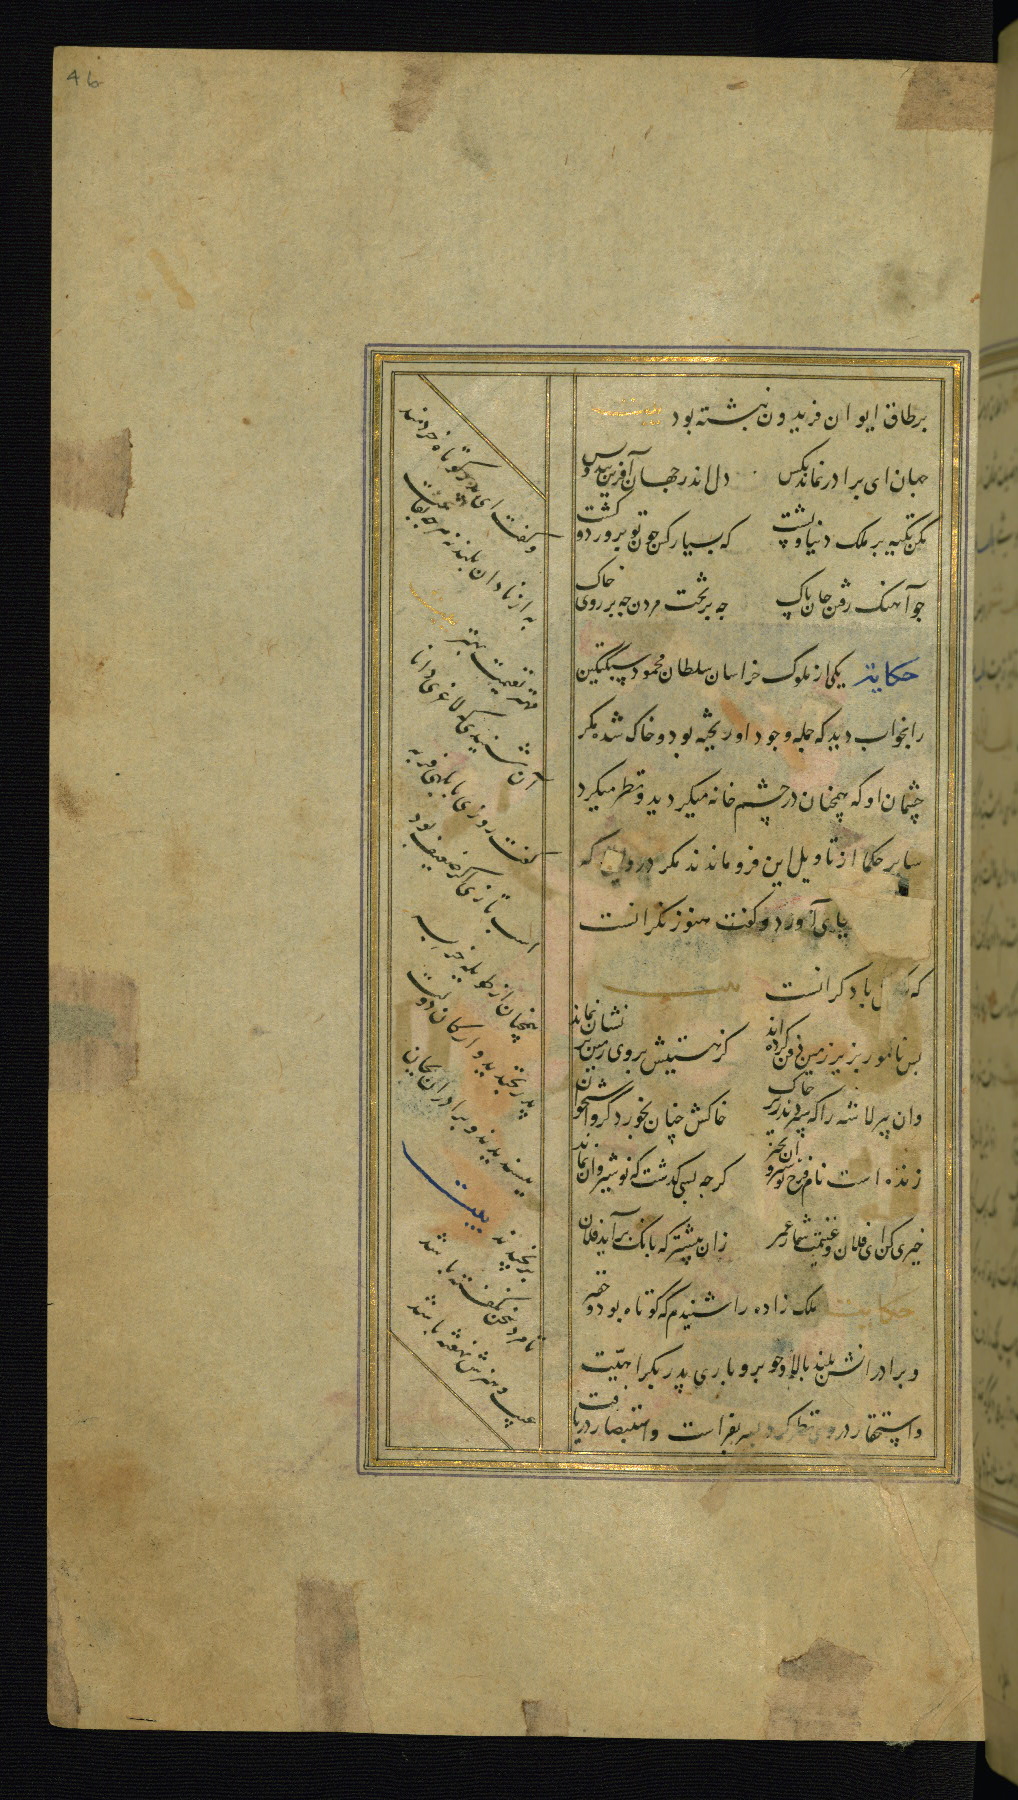 46
بر طاق ایوان فریدون نبشته بود بیت
جهان ای برادر نماند بکس دل اندر جهان آفرین بند و بس
مکن تکیه بر ملک دنیا و پشت که بسیار کس چون تو پرورد و کشت
چو آهنک رفتن جان پاک چه بر تخت مردن چه بر روی خاک
حکایت یکی از ملوک خراسان سلطان محمود سبکتکین
را بخواب دید که جمله وجود او ریخته بود و خاک شده مکر
چشمان او که همچنان در چشم خانه میکردید و نظر میکرد
سایر حکما از تاویل این فرو ماندند مکر درویشی که
بجای آورد و کفت هنوز نکرانست
که ملکش با دکرانست بیت
بس نامور بزیر زمین دفن کرده اند کز هستیش بروی زمین بر نشان نماند
وان پیر لاشه را که سپردند زیر خاک خاکش چنان بخورد کزو استخوان نماند
زنده است نام فرخ نوشیروان بخیر کرچه بسی کذشت که نوشیروان نماند
خیری کن ای فلان و غنیمت شمار عمر زان پیشتر که بانک بر آید فلان نماند
حکایت ملک زاده را شنیدم که کوتاه بود و حقیر
و برادرانش بلند بالا و خوبرو باری پدر بکراهیت
و استحقار در وی نظر کرد پسر بفراست و استبصار دریافت
و کفت ای پدر کوتاه خردمند
به از نادان بلند نه هر چه بقامت
مهتر بقیمت بهتر بیت
آن شنیدی که لاغری دانا
کفت روزی بابلهی فربه
اسب تازی اکر ضعیف بود
همچنان از طویله خر به
پدر بخندید و ارکان دولت
بپسندیدند و برادران بجان
برنجیدند بیت
تا مرد سخن نکفته باشد
عیب و هنرش نهفته باشد